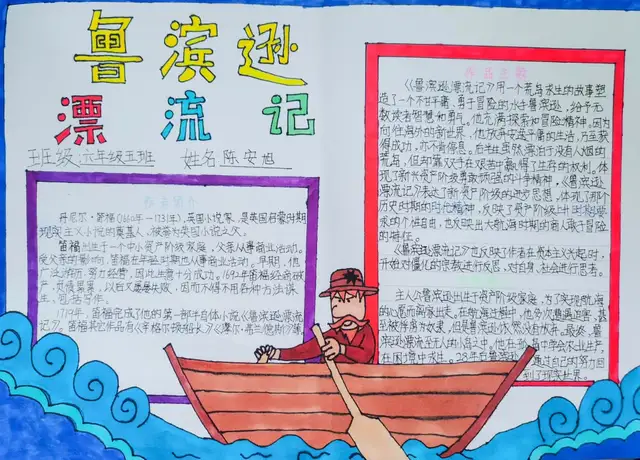 鲁滨逊
漂流记
班级 六年级五班 姓名 陈安旭
作者简介
丹尼尔·笛福(1660年-1731年),英国小说家,是英国启蒙时期
现实主义小说的奠基人,被称为英国小说之父。
笛福出生于一个中小资产阶级家庭,父亲从事商业活动。
受父亲的影响,笛福在早年时期也从事商业活动。早期,他
广泛游历,努力经营,因此生意十分成功。1692年笛福经商破
产,负债累累,以后又屡屡失败,因而不得不用各种方法谋
生,包括写作。
1719年,笛福完成了他的第一部于自体小说《鲁滨逊漂流
记》。笛福其它作品有《辛格尔顿船长》《摩尔·弗兰德斯》等。
作品主题
《鲁滨逊漂流记》用一个荒岛求生的故事塑
造了一个不甘平庸,勇于冒险的水手鲁滨逊,给予无
数读者智慧和勇气。他充满探索和冒险精神。因为
向往海外的新世界,他放弃安逸平庸的生活,乃至获
得成功,亦不肯停息。后半生虽然漂泊于没有人烟的
荒岛,但却靠双手在艰苦中赢得了生存的权利。体
现了新兴资产阶级勇敢顽强的斗争精神,《鲁滨逊
漂流记》表达了新资产阶级的进步思想,体现了那个
历史时期的时代精神,反映了资产阶级上升时期追
求的个性自由,也反映出大航海时期的商人敢于冒险
的情绪。
《鲁滨逊漂流记》也反映了作者在资本主义起时,
开始对僵化的宗教进行反思,对自身、社会进行思考。
主人公鲁滨逊出生于资产阶级家庭,为了实现航海
的心愿而离家出走。在航海过程中,他多次遭遇迫害,甚
至被俘虏为奴隶,但是鲁滨逊依然没有放弃。最终,鲁
滨逊漂流至无人的小岛之中。他在孤岛中学会了从生产,
在困境中求生。28年后鲁滨逊
通过自己的努力回
到了现实世界。